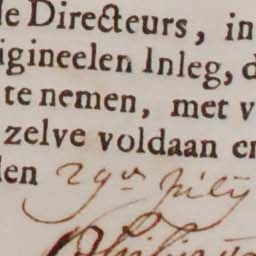 le Directeurs, in
igineelen Inleg, d
te nemen, met v
zelve voldaan en
len 29en July